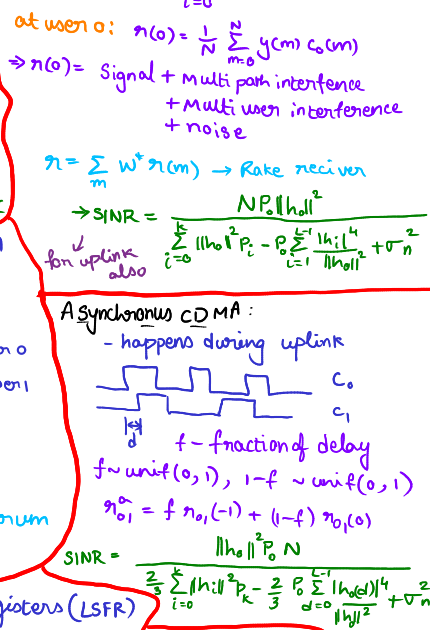 i=0
at user 0: r(0) = 1/N Σ_{m=0}^{N} y(m) c₀(m)
⇒ r(0) = Signal + Multi path interfence
+ Multi user interference
+ noise
r = Σ_m w* r(m) → Rake reciver
→ SINR = N P₀ ||h₀||² / (Σ_{i=0}^{k} ||h₀||² P_i - P₀ Σ_{i=1}^{L-1} |h_i|⁴ / ||h₀||² + σ_n²)
for uplink
also
Asynchronus CDMA :
- happens during uplink
C₀
C₁
d
f - fraction of delay
f ~ unif(0, 1), 1-f ~ unif(0, 1)
r₀₁ᵃ = f r₀₁(-1) + (1-f) r₀₁(0)
SINR = ||h₀||² P₀ N / (2/3 Σ_{i=0}^{k} ||h_i||² P_k - 2/3 P₀ Σ_{d=0}^{L-1} |h₀(d)|⁴ / ||h₀||² + σ_n²)
isters (LSFR)